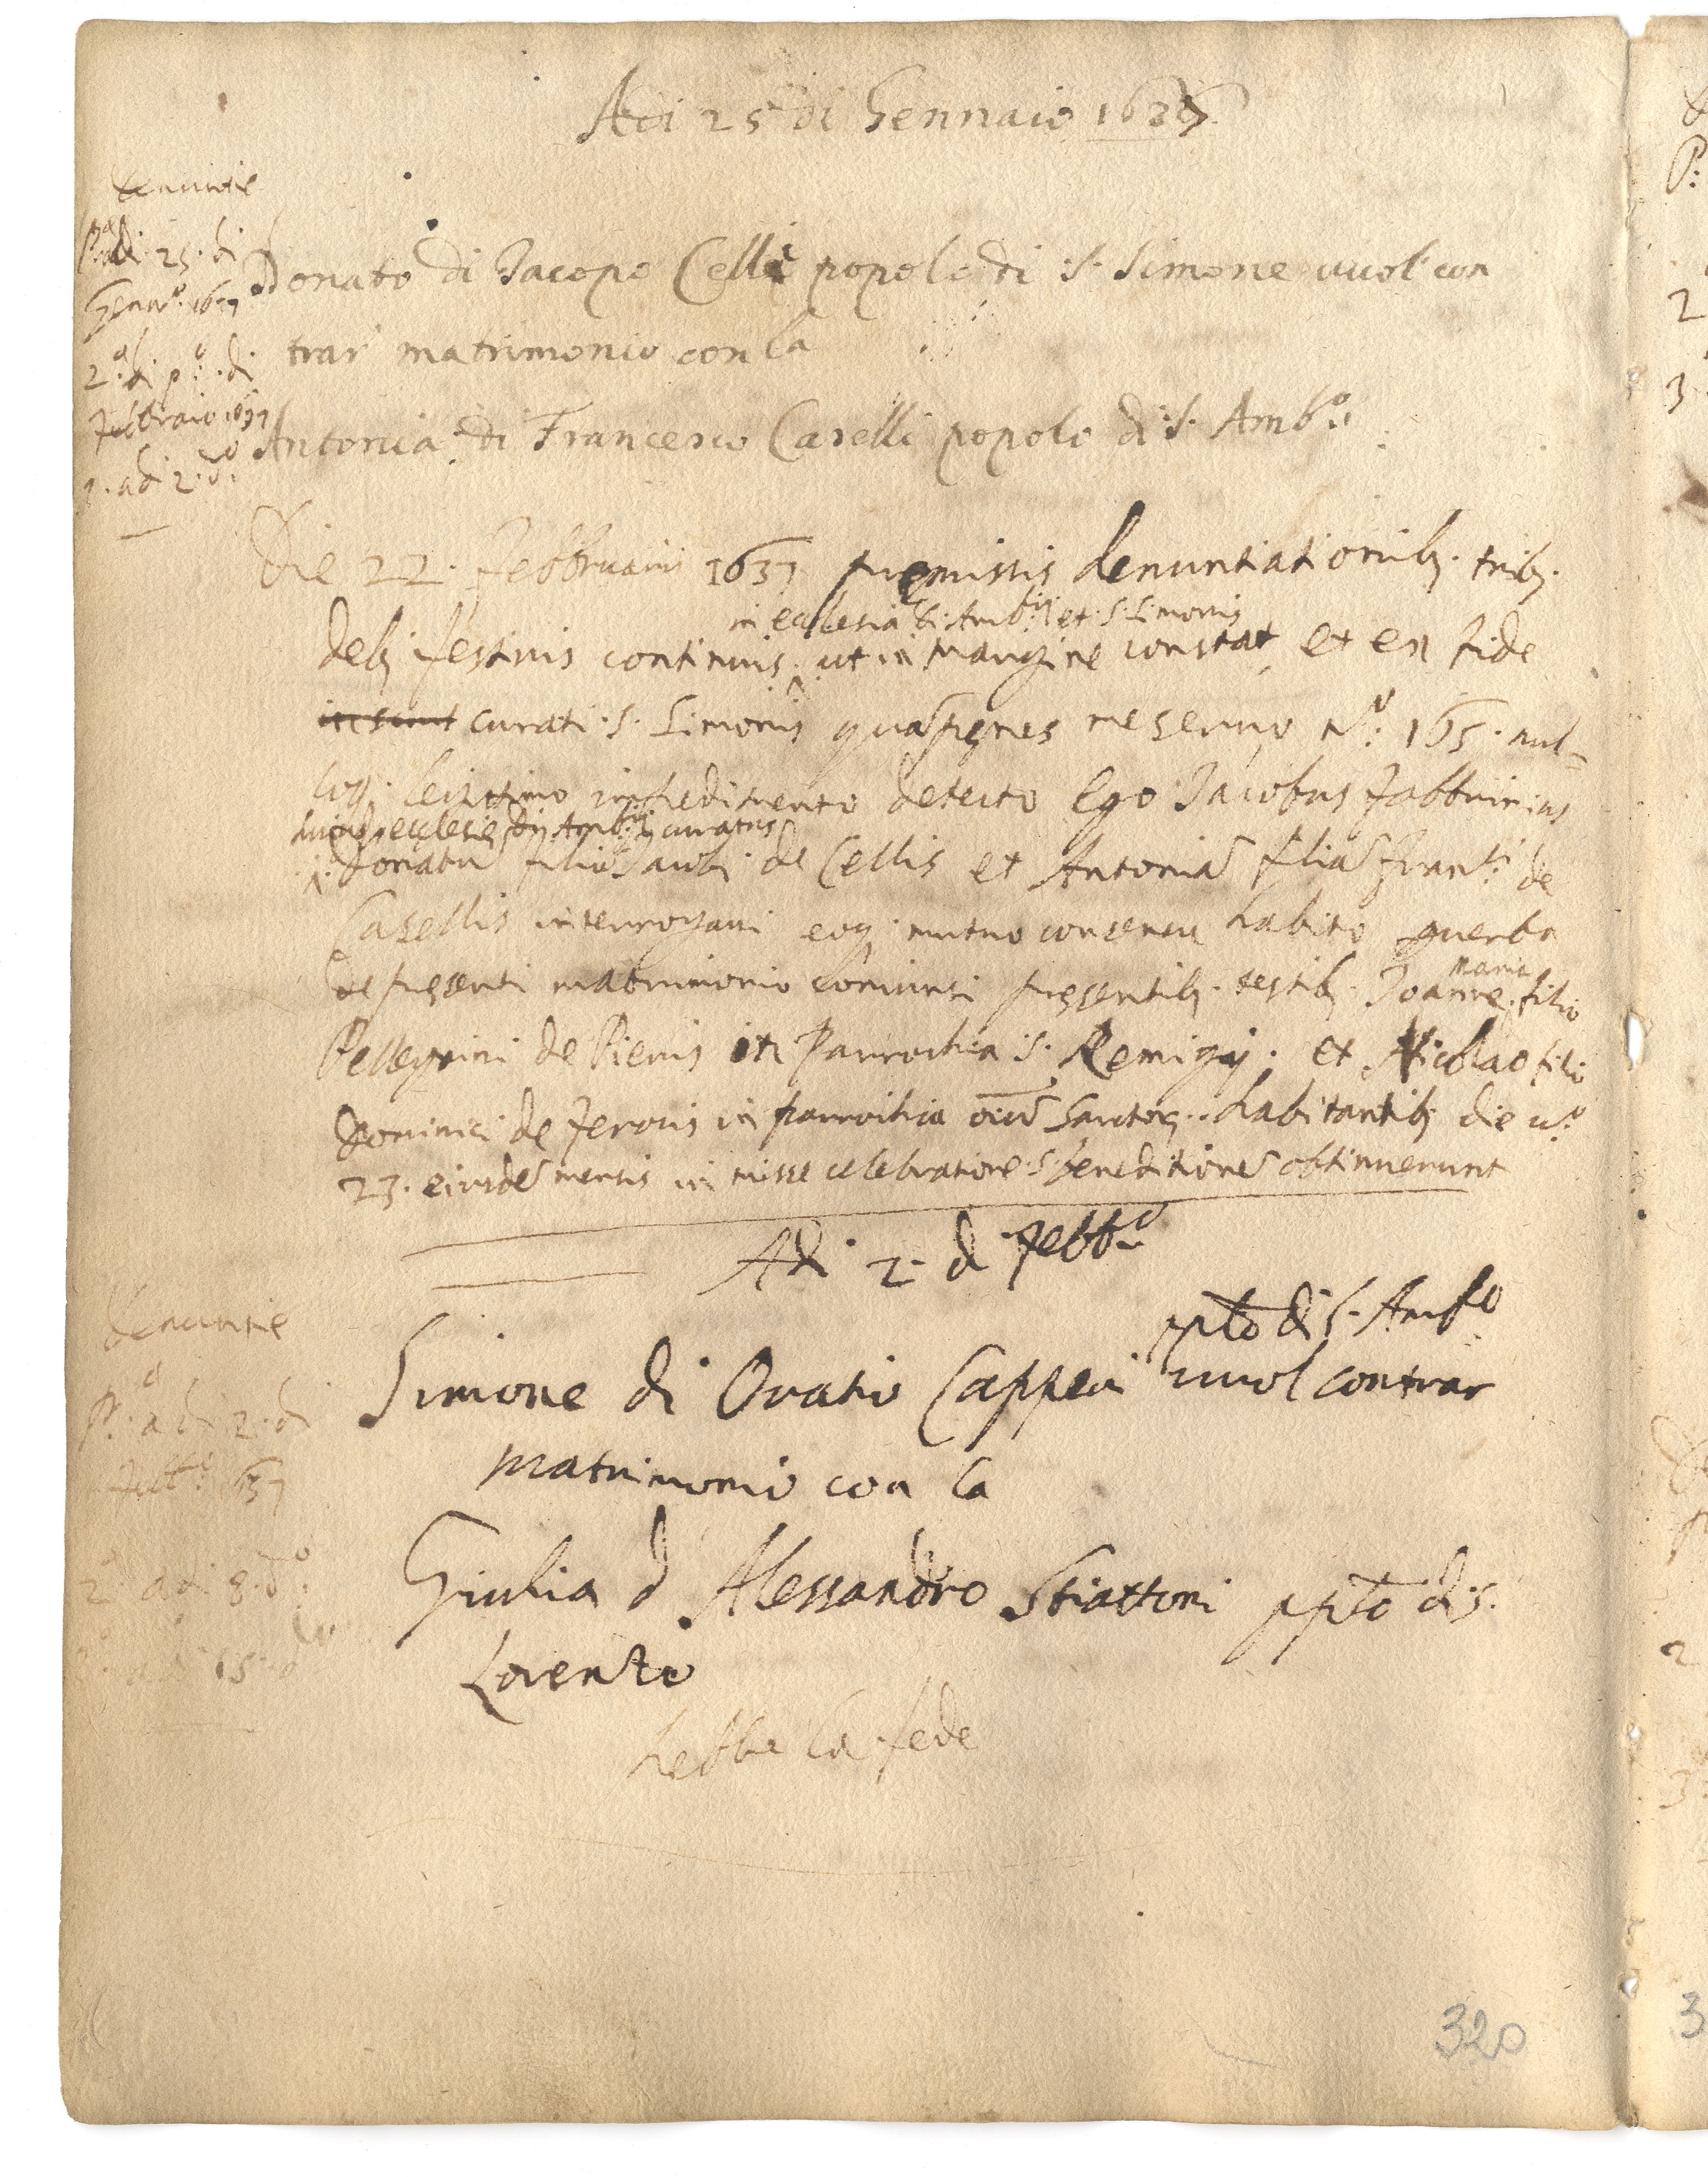 Adi 25 di Gennaio 1637
denuntie
P.ª adi 25. di
Genn.º 1637
2.ª di p.º di
Febbraio 1637
3. adi 2. d.º
Donato di Jacopo Celli popolo di S. Simone vuol con
trar matrimonio con la
Antonia di Francesco Caselli popolo di S. Amb.º
Die 22. Febbruarii 1637 premissis denuntiationib; trib;
dieb; festivis continuis ut in margine constat et ex fide
in ecclesia S. Amb.ii et S. Simonis
in sunt curati S. Simonis quã penes me servo N.º 165. nul=
loq; legittimo impedimento detecto Ego Jacobus Fabbrinius
ecclesie S. Amb.ii curatus
Donatũ filiũ Jacobi de Cellis et Antoniã filiã Fran.ci de
Casellis interrogavi eoq; mutuo consensu habito p verba
de presenti matrimonio coniunxi presentib; testib; Joanne filio
Maria
Pellegrini de Pienis in Parrochia S. Remigij. et Nicolao filio
Dominici de Feronis in parrochia oiũ Sanctor habitantib; die v.º
23. eiusdẽ mensis in misse celebratione S. benedictionẽ obtinuerunt
Adi 2. di Febb.º
denuntie
P.ª adi 2. di
Febb.º 1637
2.ª adi 8. d.º
3.ª adi 15 d.º
pplo di S. Amb.º
Simone di Oratio Cappevi vuol contrar
matrimonio con la
Giulia d Alessandro Stiattoni pplo di S.
Lorenzo
hebbe la fede
320